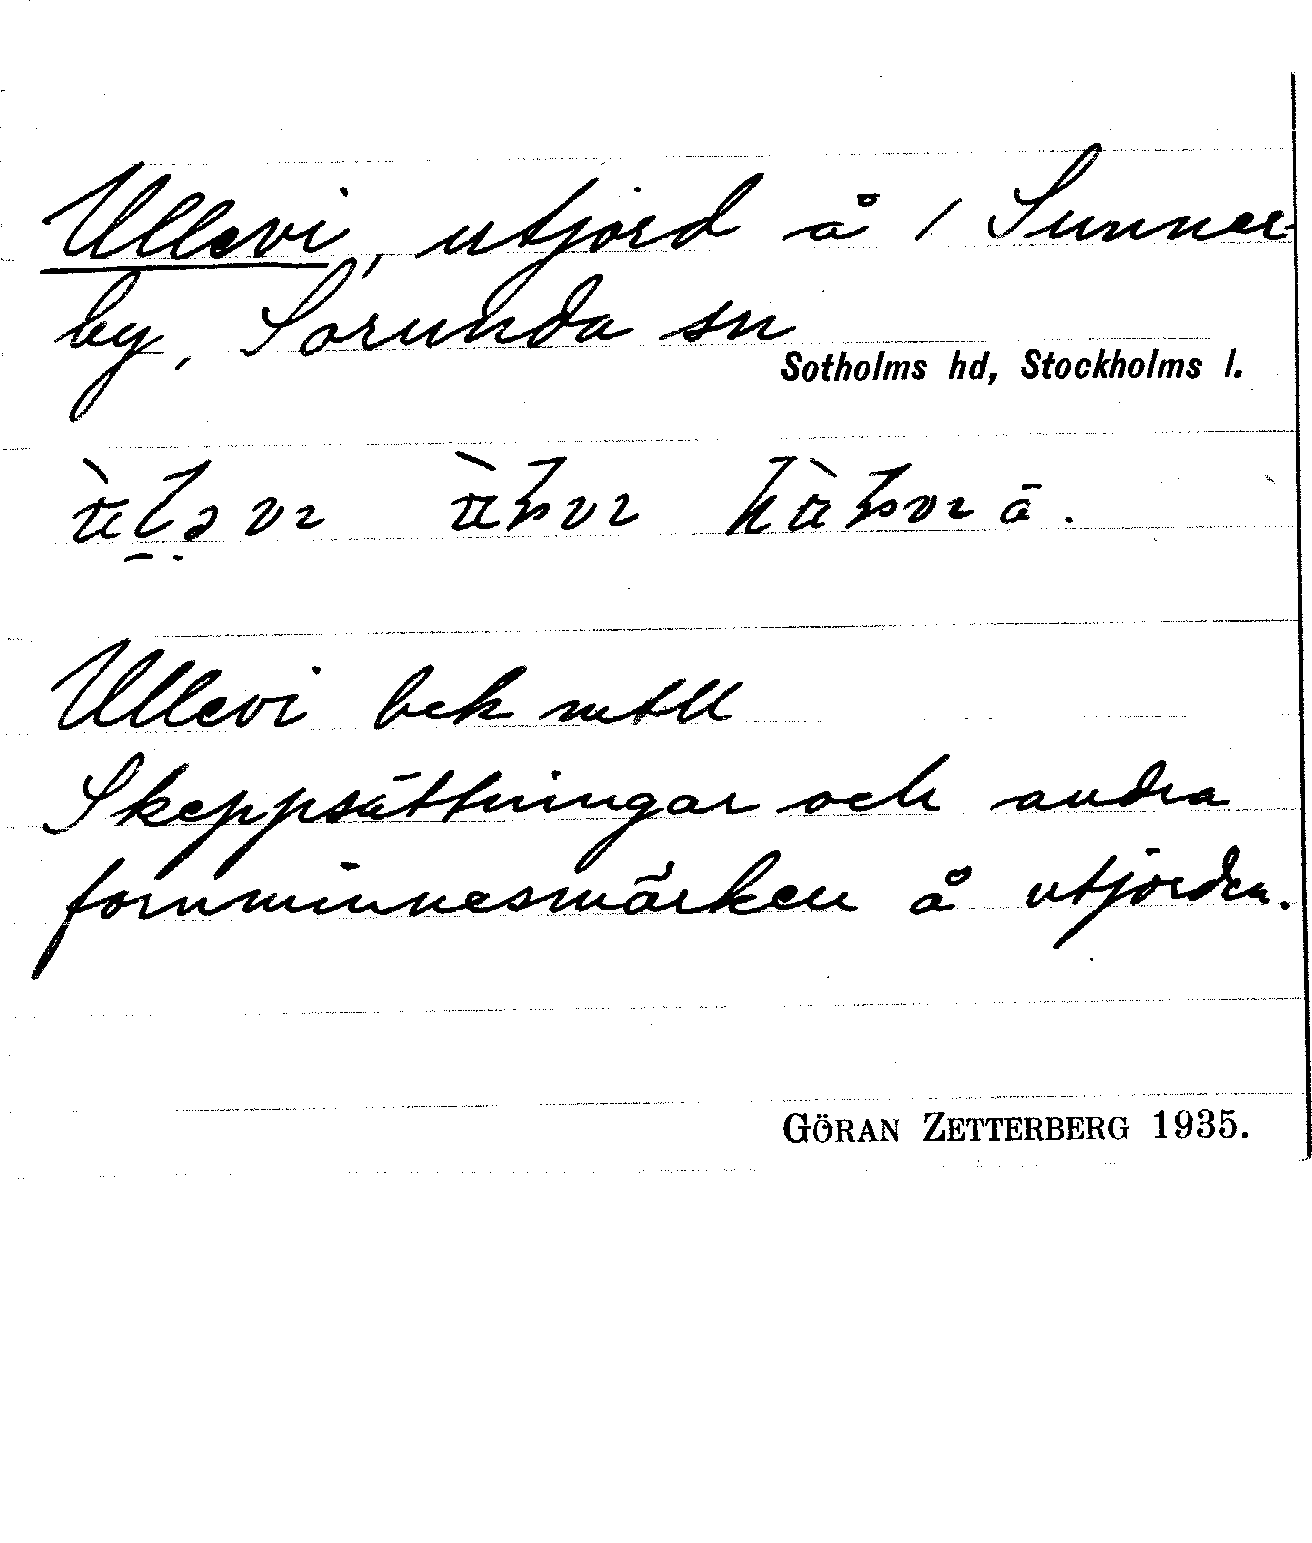 Ullevi, utjord å / Sunner-
by, Sorunda sn
Sotholms hd, Stockholms l.
Ullevi bek mtll
Skeppsättningar och andra
fornminnesmärken å utjorden.
GÖRAN ZETTERBERG 1935.